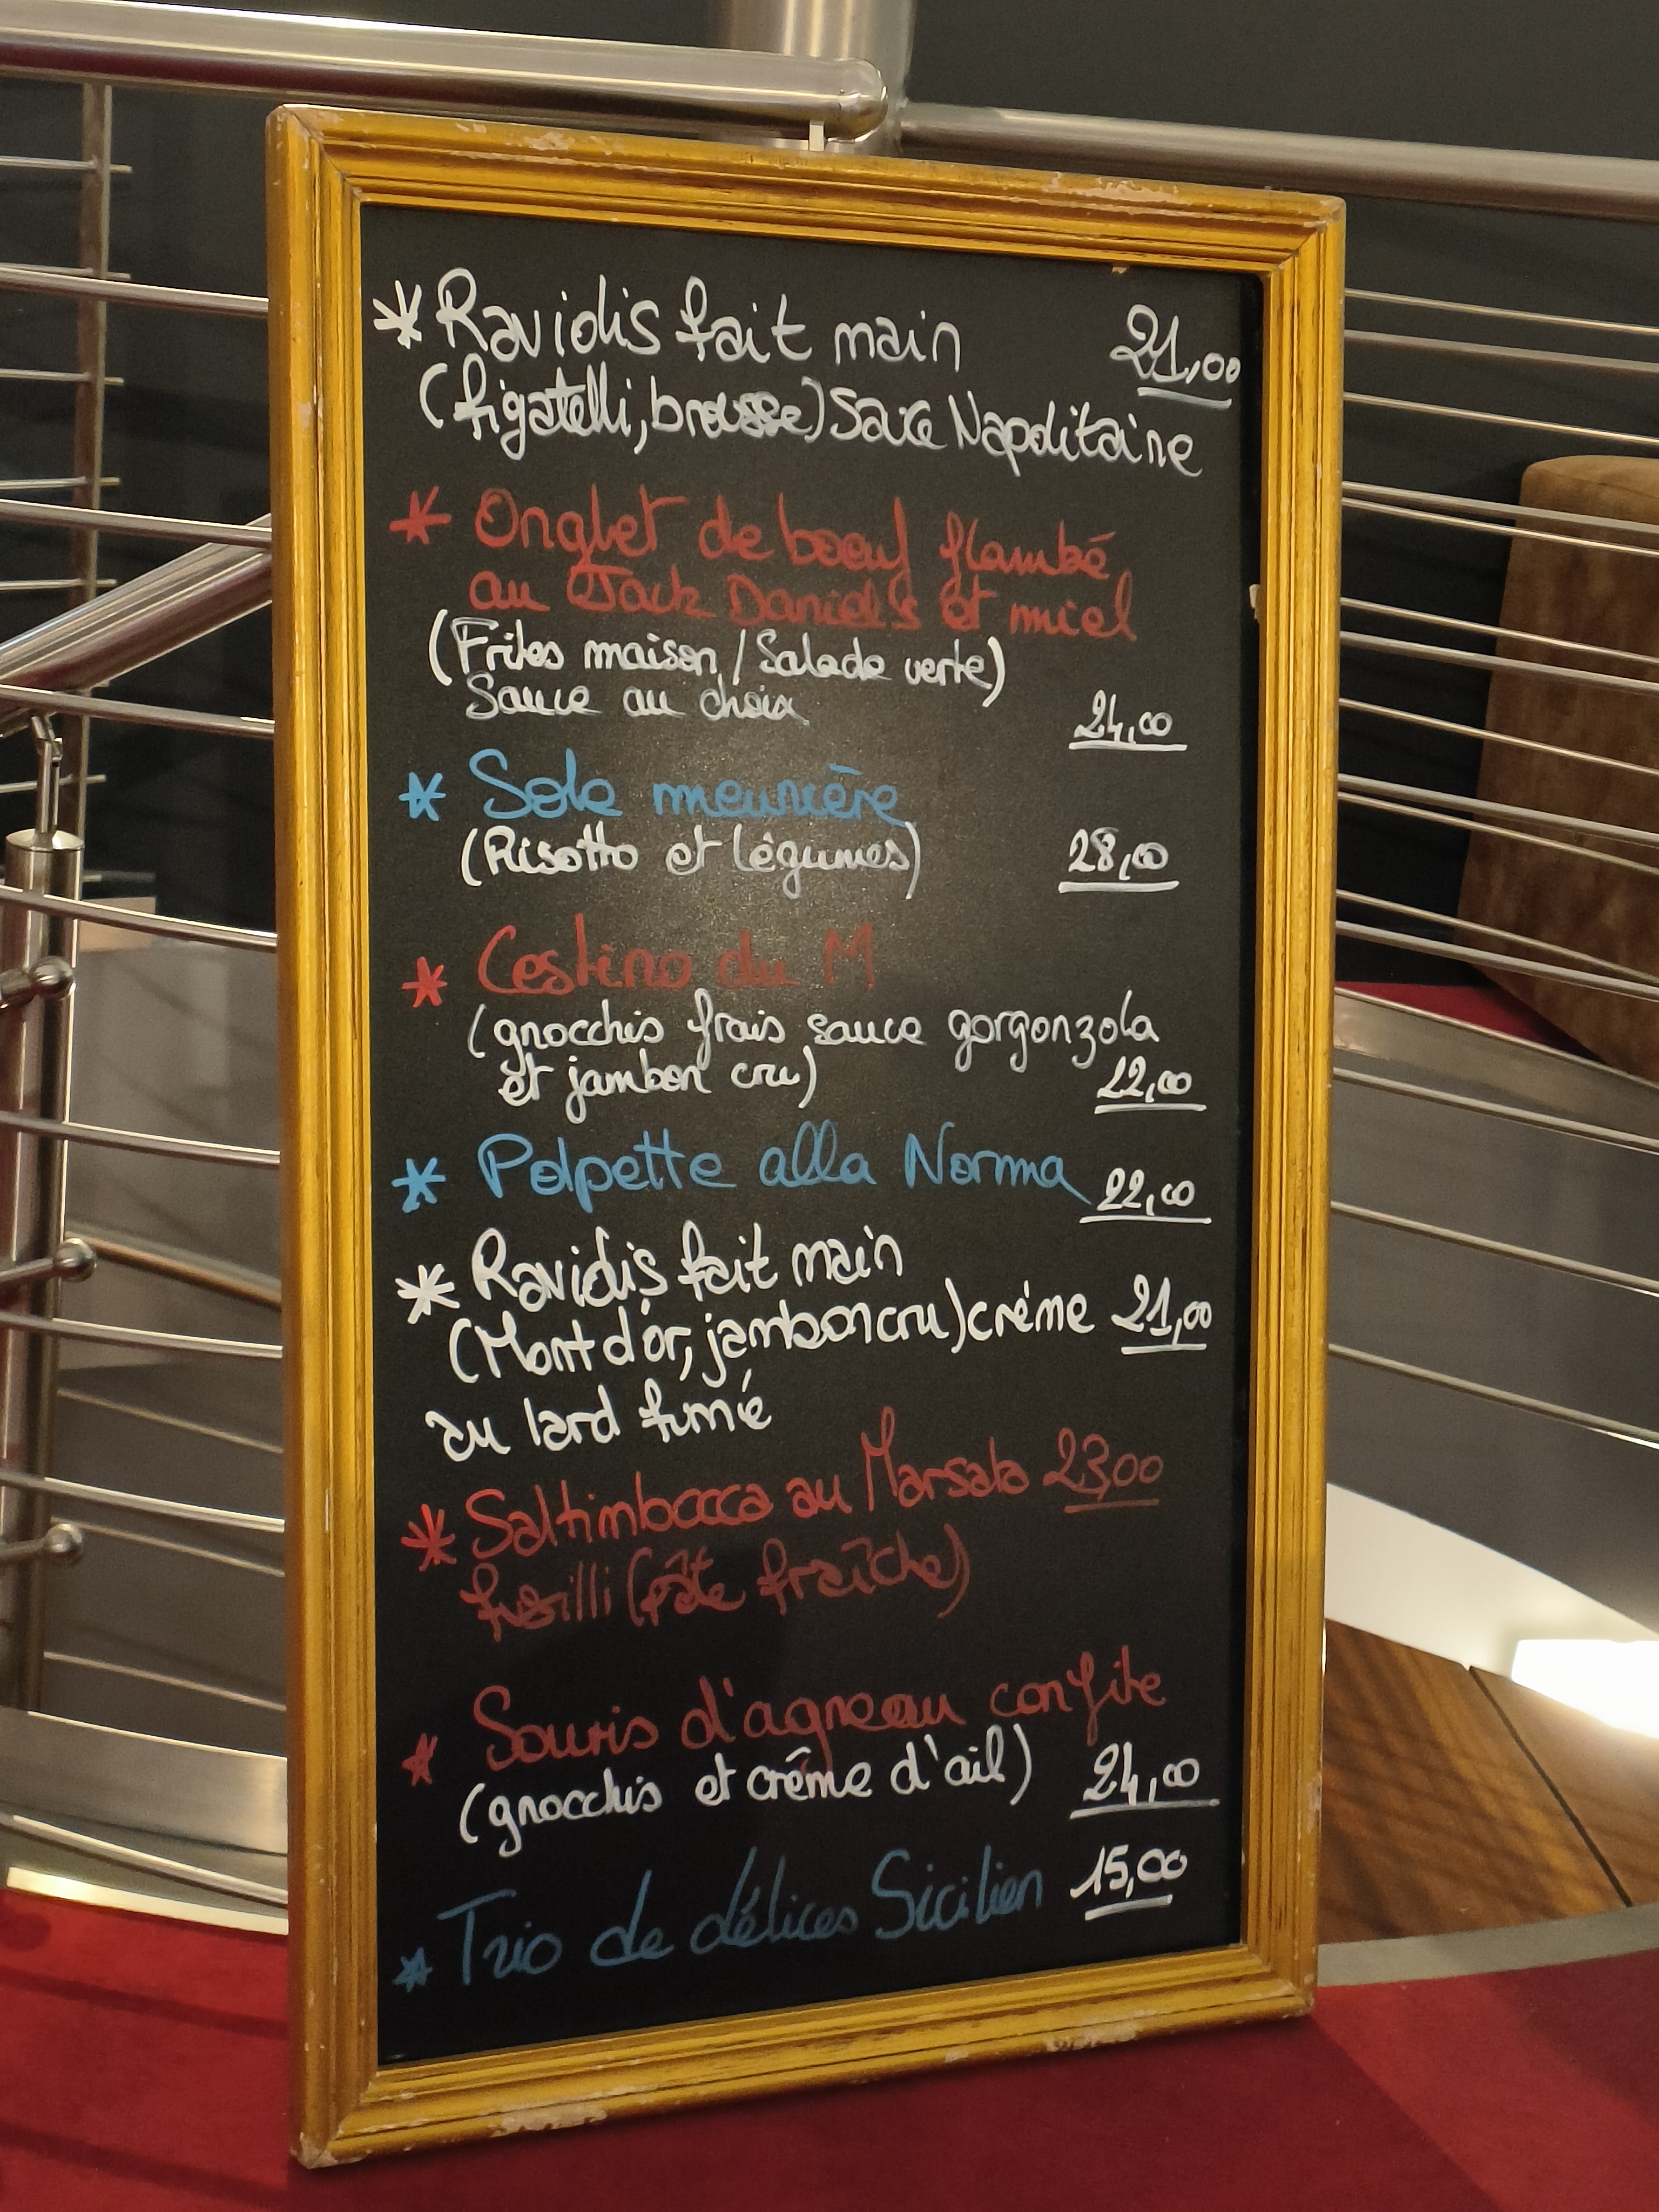 * Raviolis fait main 21,00
(figatelli, brousse) Sauce Napolitaine
* Onglet de boeuf flambé
au Jack Daniel's et miel
(Frites maison / Salade verte)
Sauce au choix 24,00
* Sole meunière
(Risotto et légumes) 28,00
* Cestino du M
(gnocchis frais sauce gorgonzola
et jambon cru) 22,00
* Polpette alla Norma 22,00
* Raviolis fait main
(Mont d'or, jambon cru) crème 21,00
au lard fumé
* Saltimbocca au Marsala 23,00
fusilli (pâte fraîche)
* Souris d'agneau confite
(gnocchis et crème d'ail) 24,00
* Trio de délices Sicilien 15,00